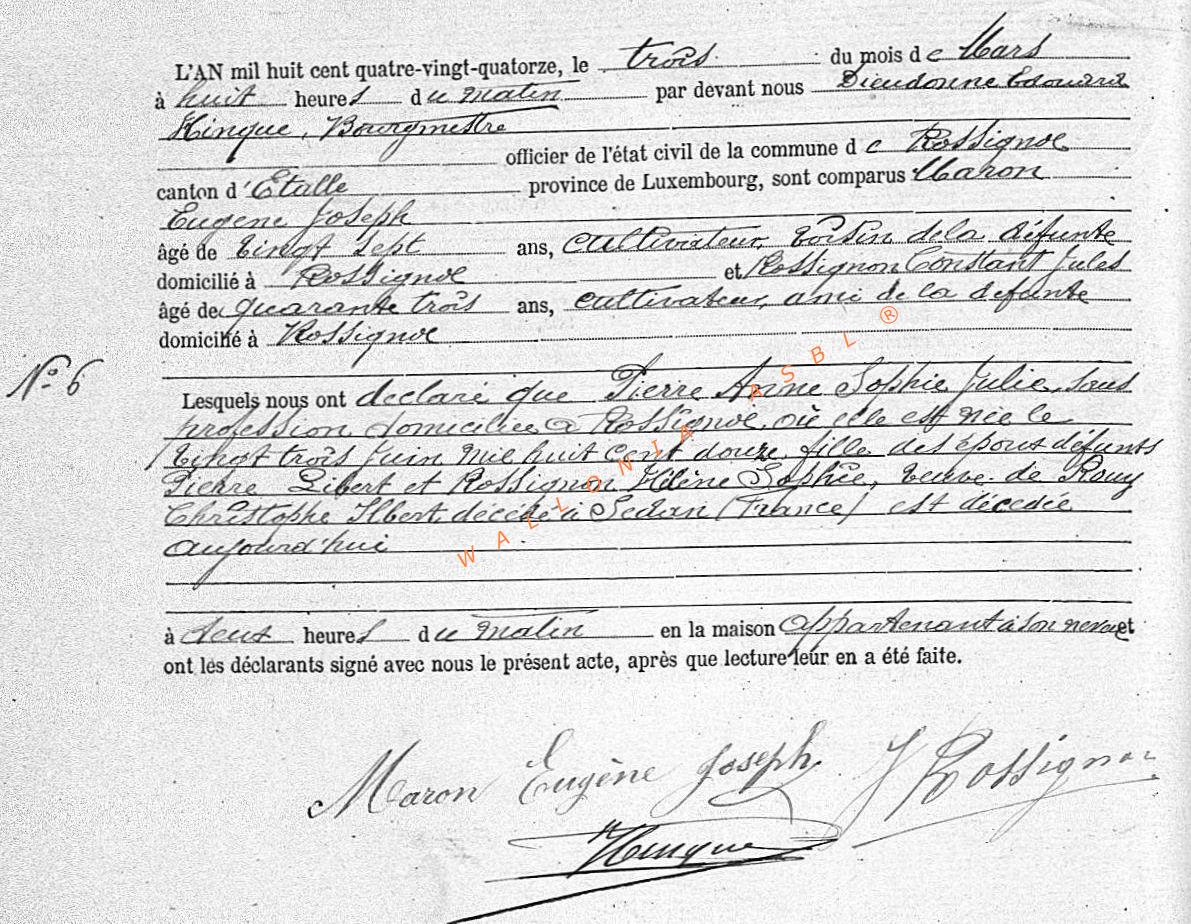 L'AN mil huit cent quatre-vingt-quatorze, le trois du mois de Mars
à huit heures du matin par devant nous Dieudonne Edouard
Hinque, Bourgmestre
officier de l'état civil de la commune de Rossignol
canton d'Etalle province de Luxembourg, sont comparus Maron
Eugène Joseph
âgé de vingt sept ans, cultivateur, voisin de la défunte
domicilié à Rossignol et Rossignon Constant Jules
âgé de quarante trois ans, cultivateur, ami de la defunte
domicilié à Rossignol
N° 6
Lesquels nous ont declaré que Pierre Anne Sophie Julie, sans
profession, domiciliée à Rossignol, où elle est née le
vingt trois Juin mil huit cent douze, fille des époux défunts
Pierre Libert et Rossignon Hélène Sophie, veuve de Rouy
Christophe Albert décédé à Sedan (France) est décédée
aujourd'hui
à deux heures du matin en la maison appartenant à son neveu et
ont les déclarants signé avec nous le présent acte, après que lecture leur en a été faite.
Maron Eugène Joseph J Rossignon
Hinque
WALLONIA ASBL ®